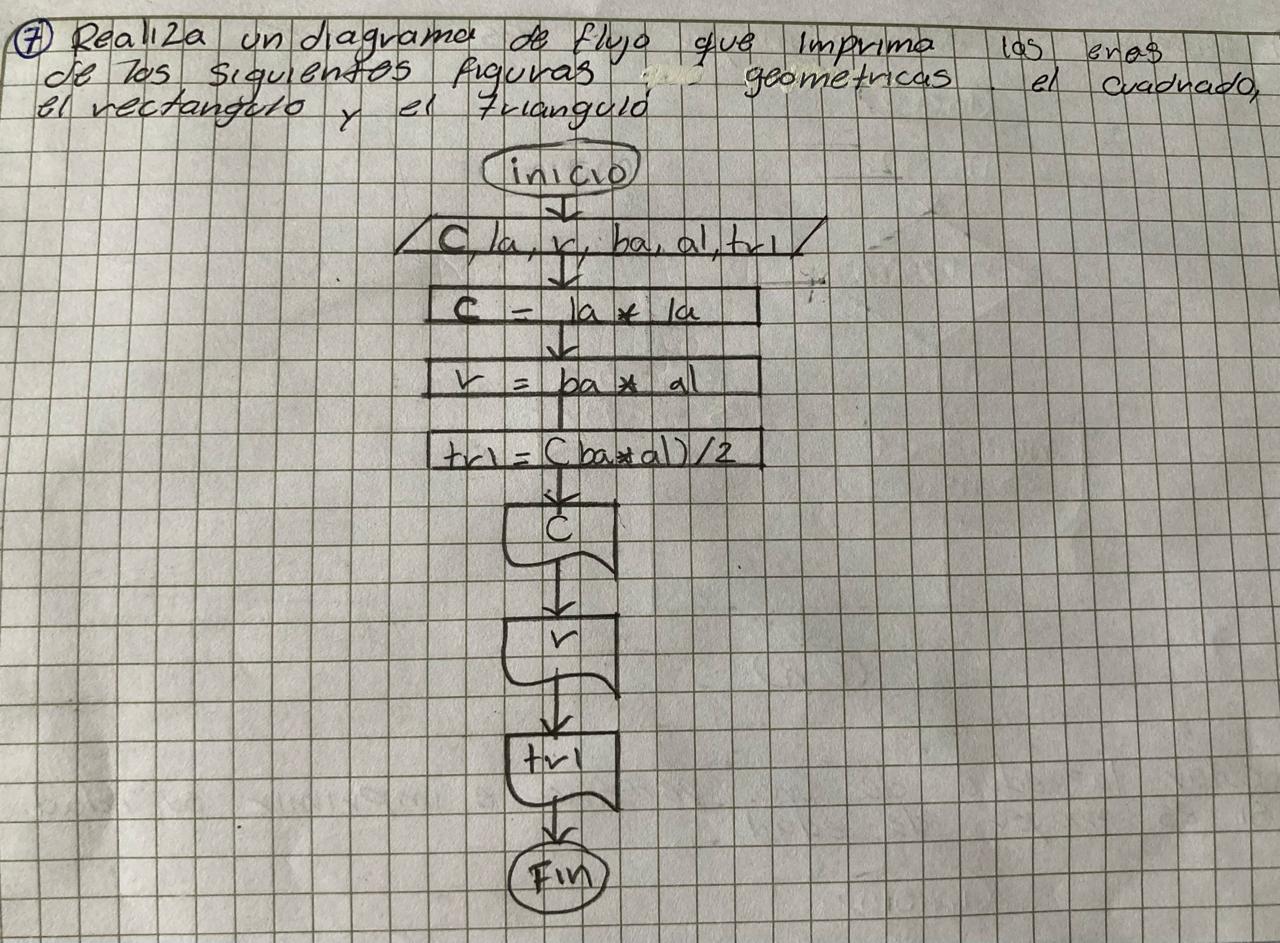 7 Realiza un diagrama de flujo que imprima las eras
de las siguientes figuras geometricas. el cuadrado,
el rectangulo y el triangulo
inicio
C, la, r, ba, al, tri
C = la * la
r = ba * al
tri = (ba*al)/2
C
r
tri
Fin